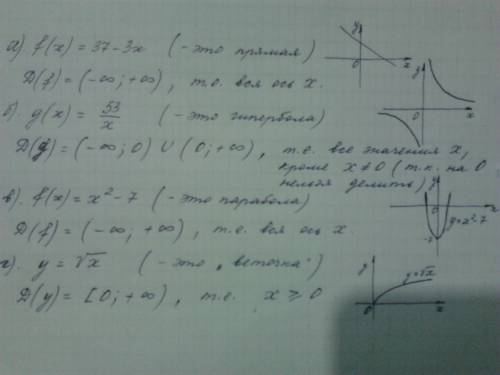 а). f(x) = 37-3x (-это прямая)
D(f) = (-∞; +∞), т.е. вся ось x.
б). g(x) = 53/x (-это гипербола)
D(g) = (-∞; 0) ∪ (0; +∞), т.е. все значения x,
кроме x≠0 (т.к. на 0
нельзя делить)
в). f(x) = x²-7 (-это парабола)
D(f) = (-∞; +∞), т.е. вся ось x.
г). y = √x (-это „веточка“)
D(y) = [0; +∞), т.е. x ≥ 0
y
0
x
y
0
x
y
0
x
-7
y=x²-7
y
0
x
y=√x